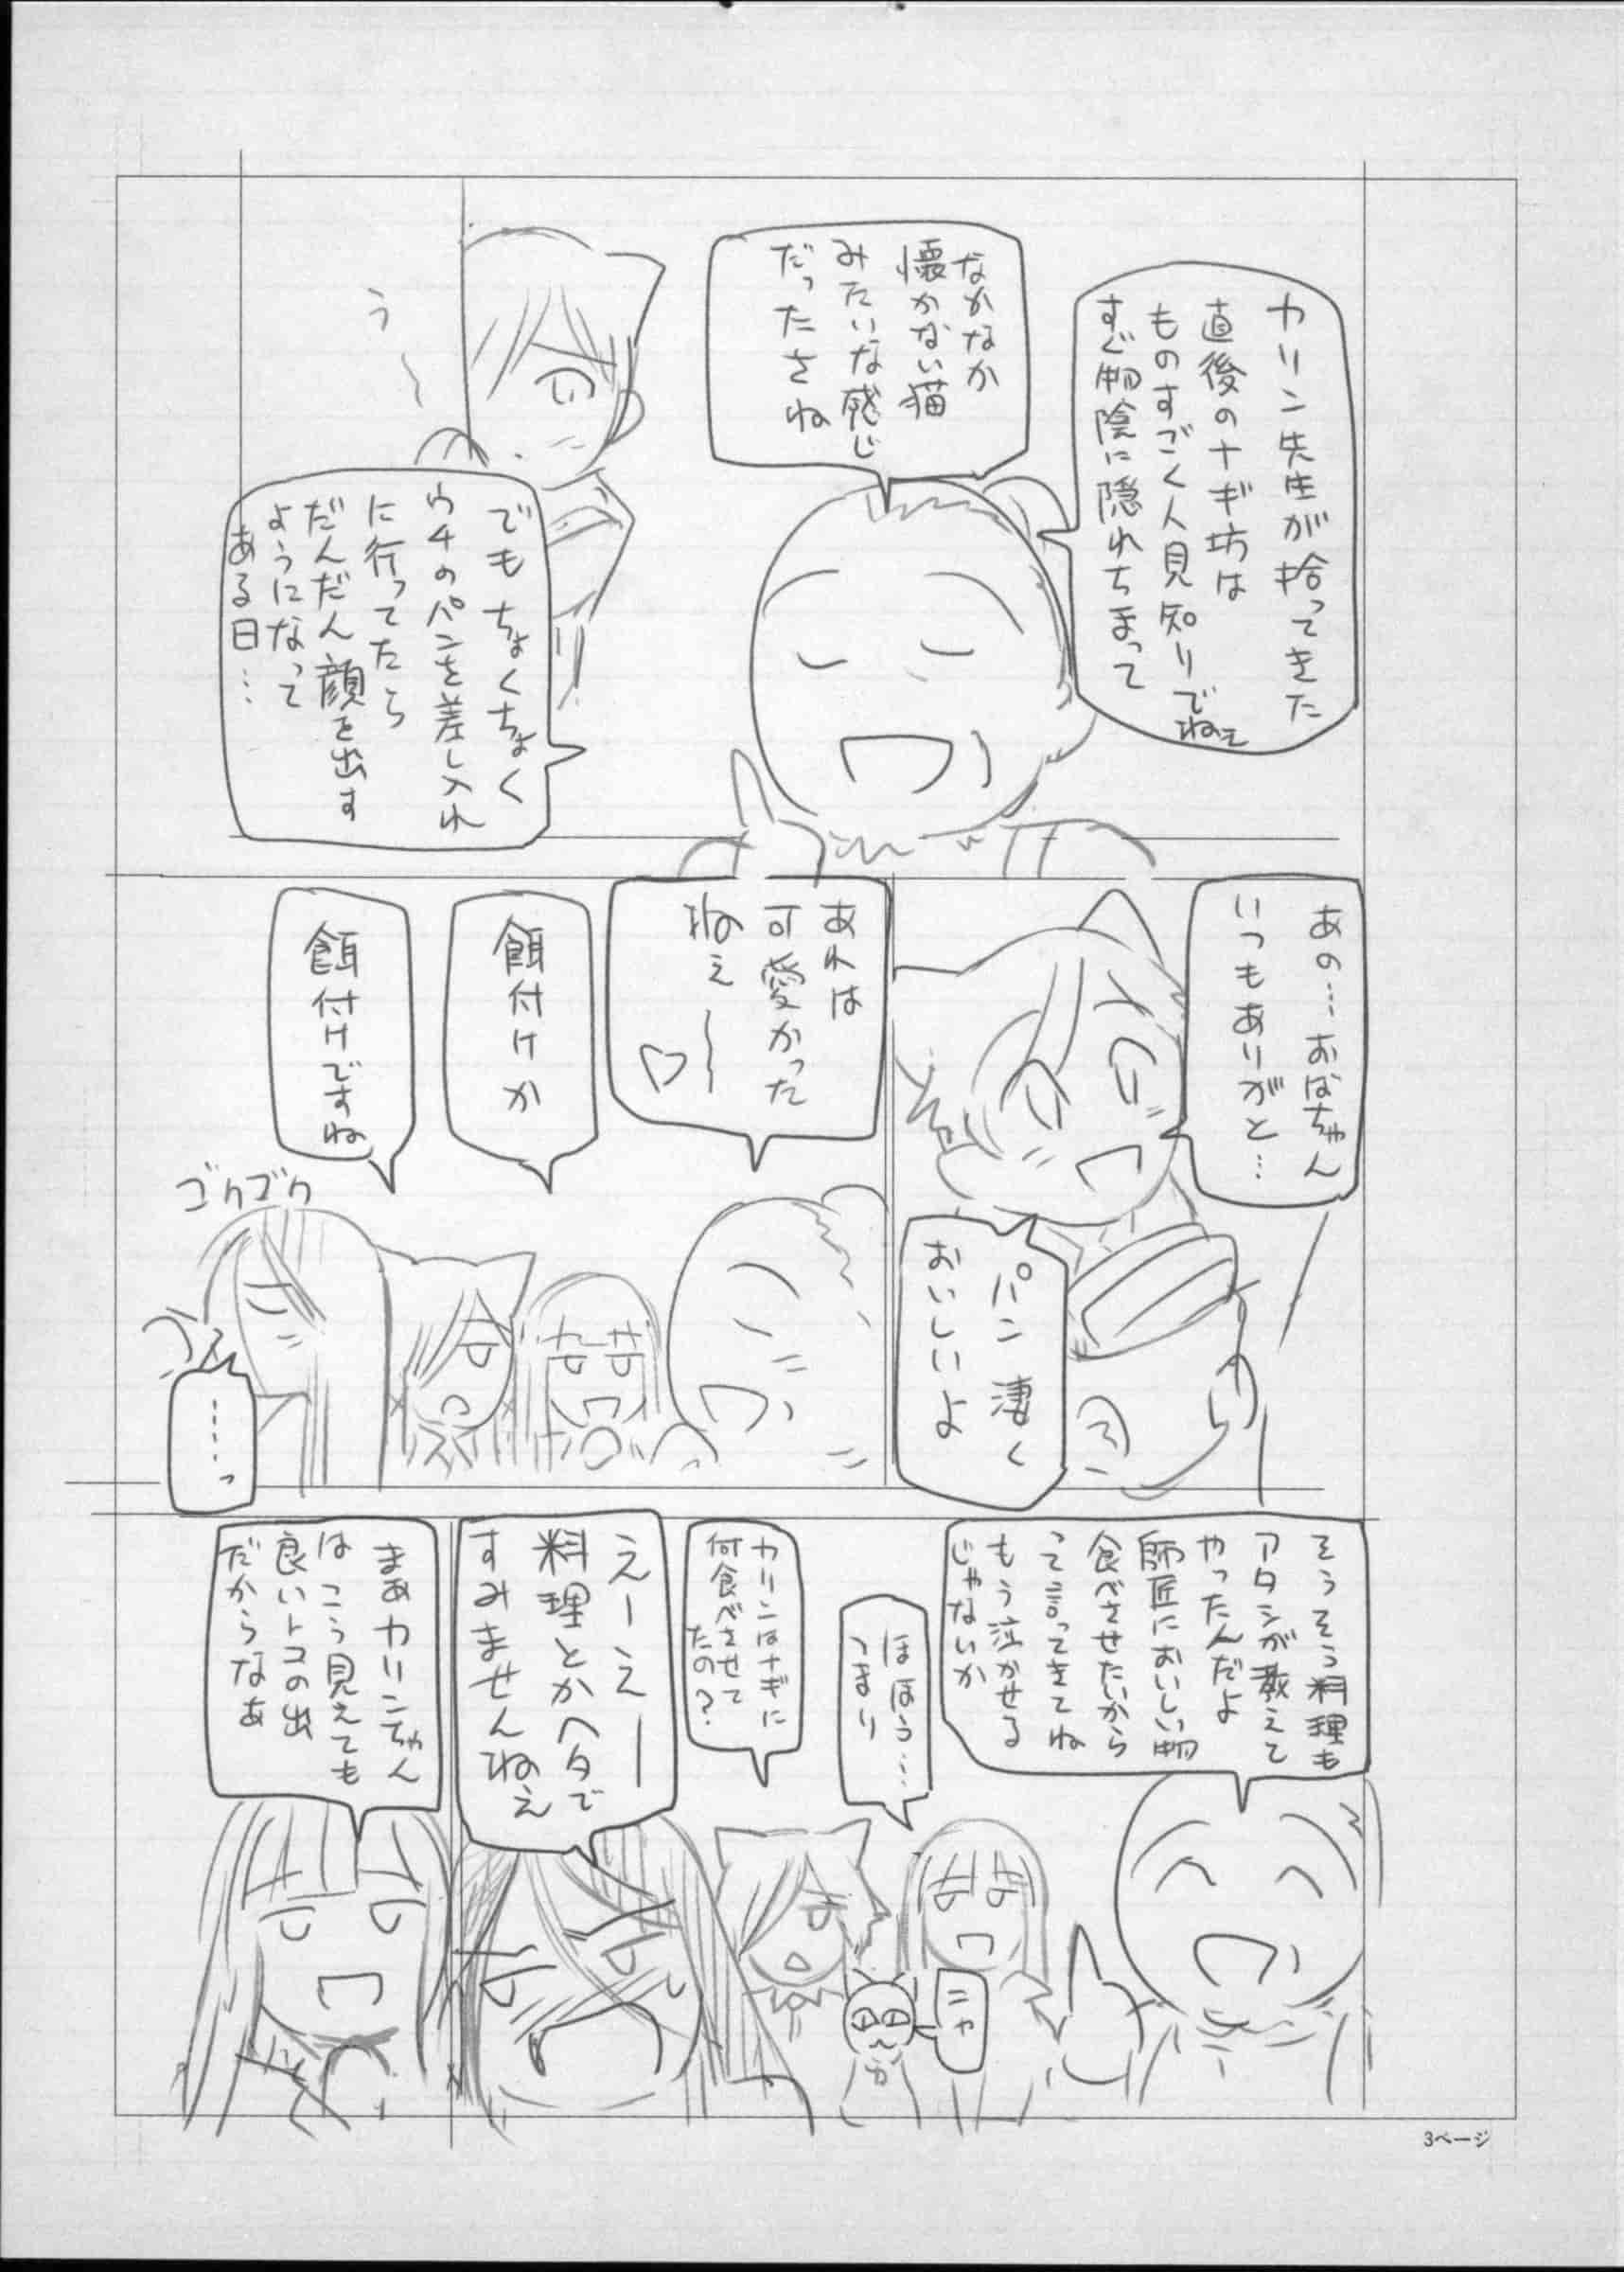 カリン先生が拾ってきた
直後のナギ坊は
ものすごく人見知りでねぇ
すぐ物陰に隠れちまって
なかなか
懐かない猫
みたいな感じ
だったさね
う〜
でもちょくちょく
ウチのパンを差し入れ
に行ってたら
だんだん顔を出す
ようになって
ある日…
あの…おばちゃん
いつもありがと…
パン凄く
おいしいよ
あれは
可愛かった
ねぇ〜〜♡
餌付けか
餌付けですね
ゴクゴク
……っ
そうそう料理も
アタシが教えて
やったんだよ
師匠においしい物
食べさせたいから
って言ってきてね
もう泣かせる
じゃないか
ほほう…
つまり
カリンはナギに
何食べさせて
たの?
ニャ
か
えーえー
料理とかヘタで
すみませんねえ
まあカリンちゃん
はこう見えても
良いトコの出
だからなあ
3ページ